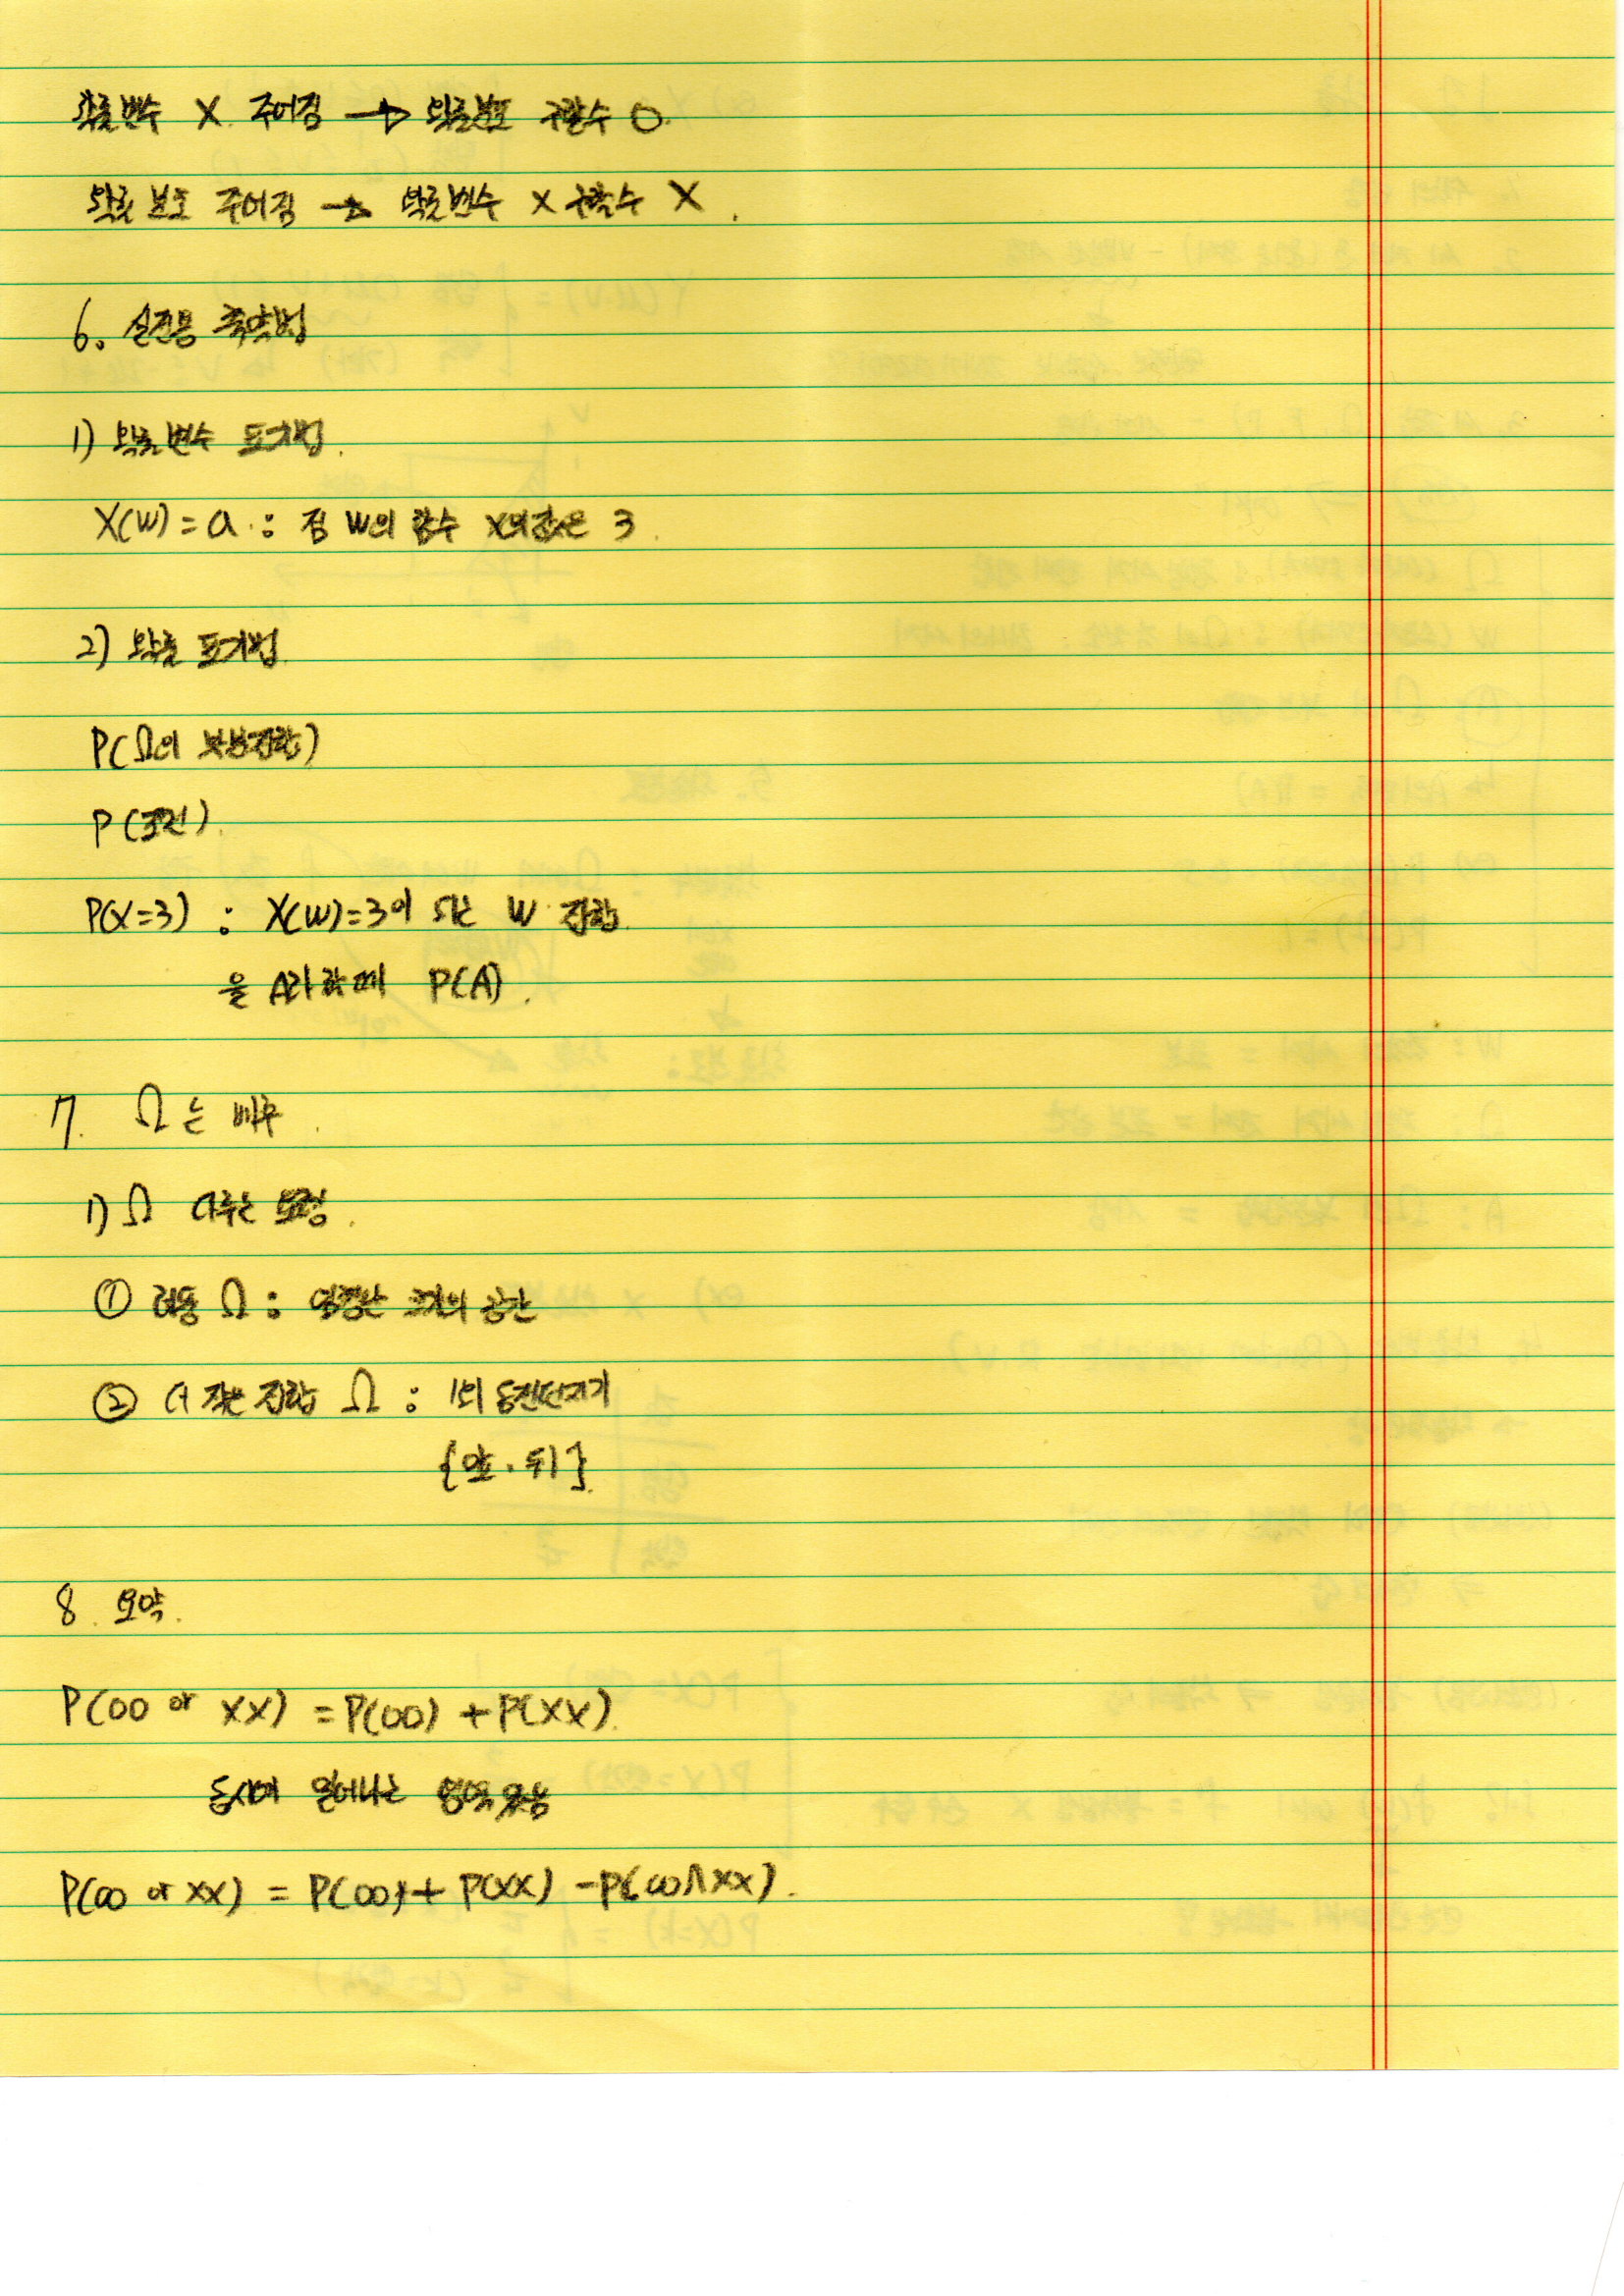 확률변수 X 주어짐 → 확률분포 구할수 O.
확률 분포 주어짐 → 확률변수 X 구할수 X.
6. 실전용 축약법
1) 확률변수 표기법.
X(w) = a : 점 w의 함수 X의값은 3.
2) 확률 표기법.
P(Ω의 부분집합)
P(조건).
P(X=3) : X(w)=3이 되는 w 집합
을 A라 할때 P(A).
7. Ω는 배우.
1) Ω 다루는 요령.
① 려동 Ω : 엄청난 크기의 공간
② 더 작은 집합 Ω : 1회 동전던지기
{앞, 뒤}
8. 요약.
P(OO or XX) = P(OO) + P(XX).
동시에 일어나는 영역 있음
P(OO or XX) = P(OO) + P(XX) - P(OO∩XX).